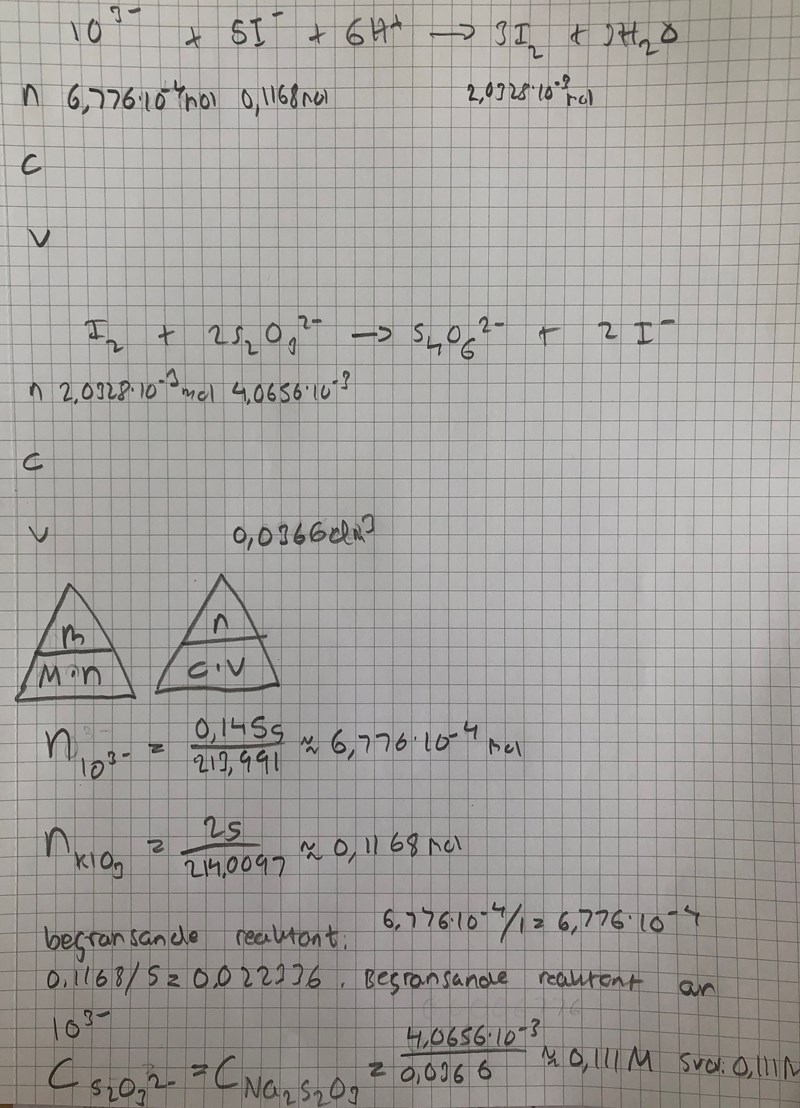 IO³⁻ + 5I⁻ + 6H⁺ → 3I₂ + 3H₂O
n 6,776·10⁻⁴mol 0,1168mol 2,0328·10⁻³mol
C
V
I₂ + 2S₂O₃²⁻ → S₄O₆²⁻ + 2 I⁻
n 2,0328·10⁻³mol 4,0656·10⁻³
C
V 0,0366dm³
m n
M·n C·V
n IO³⁻ = 0,145g / 213,991 ≈ 6,776·10⁻⁴ mol
n KIO₃ = 25 / 214,0097 ≈ 0,1168 mol
begransande reaktant: 6,776·10⁻⁴/1 = 6,776·10⁻⁴
0,1168/5 = 0,022336. Begransande reaktant ar
IO³⁻
C S₂O₃²⁻ = C Na₂S₂O₃ = 4,0656·10⁻³ / 0,0366 ≈ 0,111 M svar: 0,111M